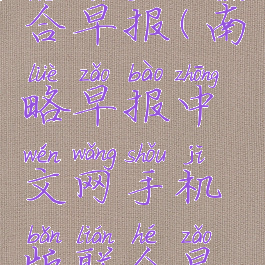 合早报(南
lüè zǎo bào zhōng
略早报中
wén wǎng shǒu jī
文网手机
bǎn lián hé zǎo
版联合早